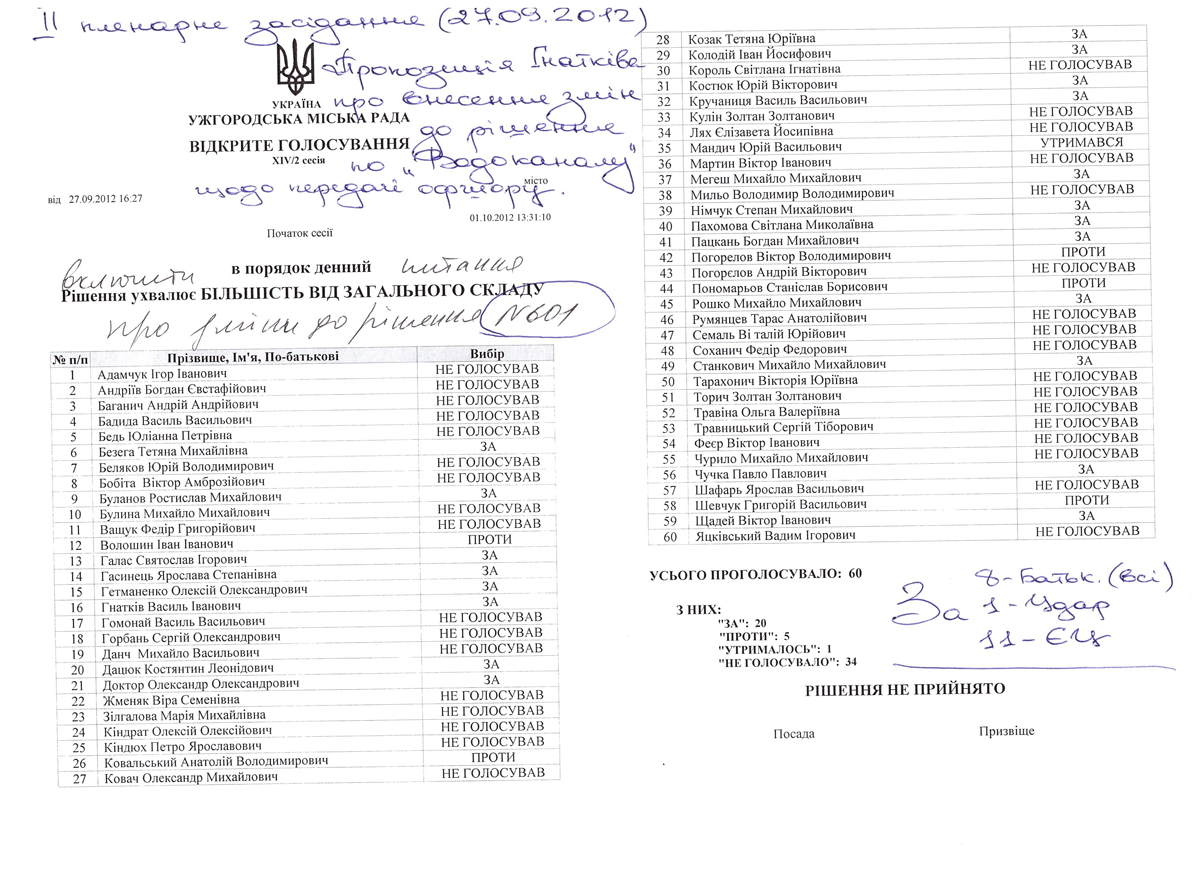 II пленарне засідання (27.09.2012)
Пропозиція Гнатківа
УКРАЇНА
про внесення змін
УЖГОРОДСЬКА МІСЬКА РАДА
до рішення
ВІДКРИТЕ ГОЛОСУВАННЯ
XIV/2 сесія
по "Водоканалу"
місто
щодо передачі офшору.
від 27.09.2012 16:27
01.10.2012 13:31:10
Початок сесії
включити в порядок денний питання
Рішення ухвалює БІЛЬШІСТЬ ВІД ЗАГАЛЬНОГО СКЛАДУ
про зміни до рішення N601
№ п/п Прізвище, Ім'я, По-батькові Вибір
1 Адамчук Ігор Іванович НЕ ГОЛОСУВАВ
2 Андріїв Богдан Євстафійович НЕ ГОЛОСУВАВ
3 Баганич Андрій Андрійович НЕ ГОЛОСУВАВ
4 Бадида Василь Васильович НЕ ГОЛОСУВАВ
5 Бедь Юліанна Петрівна НЕ ГОЛОСУВАВ
6 Безега Тетяна Михайлівна ЗА
7 Беляков Юрій Володимирович НЕ ГОЛОСУВАВ
8 Бобіта Віктор Амброзійович НЕ ГОЛОСУВАВ
9 Буланов Ростислав Михайлович ЗА
10 Булина Михайло Михайлович НЕ ГОЛОСУВАВ
11 Ващук Федір Григорійович НЕ ГОЛОСУВАВ
12 Волошин Іван Іванович ПРОТИ
13 Галас Святослав Ігорович ЗА
14 Гасинець Ярослава Степанівна ЗА
15 Гетманенко Олексій Олександрович ЗА
16 Гнатків Василь Іванович ЗА
17 Гомонай Василь Васильович НЕ ГОЛОСУВАВ
18 Горбань Сергій Олександрович НЕ ГОЛОСУВАВ
19 Данч Михайло Васильович НЕ ГОЛОСУВАВ
20 Дацюк Костянтин Леонідович ЗА
21 Доктор Олександр Олександрович ЗА
22 Жменяк Віра Семенівна НЕ ГОЛОСУВАВ
23 Зілгалова Марія Михайлівна НЕ ГОЛОСУВАВ
24 Кіндрат Олексій Олексійович НЕ ГОЛОСУВАВ
25 Кіндюх Петро Ярославович НЕ ГОЛОСУВАВ
26 Ковальський Анатолій Володимирович ПРОТИ
27 Ковач Олександр Михайлович НЕ ГОЛОСУВАВ
28 Козак Тетяна Юріївна ЗА
29 Колодій Іван Йосифович ЗА
30 Король Світлана Ігнатівна НЕ ГОЛОСУВАВ
31 Костюк Юрій Вікторович ЗА
32 Кручаниця Василь Васильович ЗА
33 Кулін Золтан Золтанович НЕ ГОЛОСУВАВ
34 Лях Єлізавета Йосипівна НЕ ГОЛОСУВАВ
35 Мандич Юрій Васильович УТРИМАВСЯ
36 Мартин Віктор Іванович НЕ ГОЛОСУВАВ
37 Мегеш Михайло Михайлович ЗА
38 Мильо Володимир Володимирович НЕ ГОЛОСУВАВ
39 Німчук Степан Михайлович ЗА
40 Пахомова Світлана Миколаївна ЗА
41 Пацкань Богдан Михайлович ЗА
42 Погорелов Віктор Володимирович ПРОТИ
43 Погорєлов Андрій Вікторович НЕ ГОЛОСУВАВ
44 Пономарьов Станіслав Борисович ПРОТИ
45 Рошко Михайло Михайлович ЗА
46 Румянцев Тарас Анатолійович НЕ ГОЛОСУВАВ
47 Семаль Ві талій Юрійович НЕ ГОЛОСУВАВ
48 Соханич Федір Федорович НЕ ГОЛОСУВАВ
49 Станкович Михайло Михайлович ЗА
50 Тарахонич Вікторія Юріївна НЕ ГОЛОСУВАВ
51 Торич Золтан Золтанович НЕ ГОЛОСУВАВ
52 Травіна Ольга Валеріївна НЕ ГОЛОСУВАВ
53 Травницький Сергій Тіборович НЕ ГОЛОСУВАВ
54 Феєр Віктор Іванович НЕ ГОЛОСУВАВ
55 Чурило Михайло Михайлович НЕ ГОЛОСУВАВ
56 Чучка Павло Павлович ЗА
57 Шафарь Ярослав Васильович НЕ ГОЛОСУВАВ
58 Шевчук Григорій Васильович ПРОТИ
59 Щадей Віктор Іванович ЗА
60 Яцківський Вадим Ігорович НЕ ГОЛОСУВАВ
УСЬОГО ПРОГОЛОСУВАЛО: 60
8-Батьк. (всі)
З НИХ:
За 1-Удар
"ЗА": 20
"ПРОТИ": 5
11-ЄЦ
"УТРИМАЛОСЬ": 1
"НЕ ГОЛОСУВАЛО": 34
РІШЕННЯ НЕ ПРИЙНЯТО
Посада Призвіще